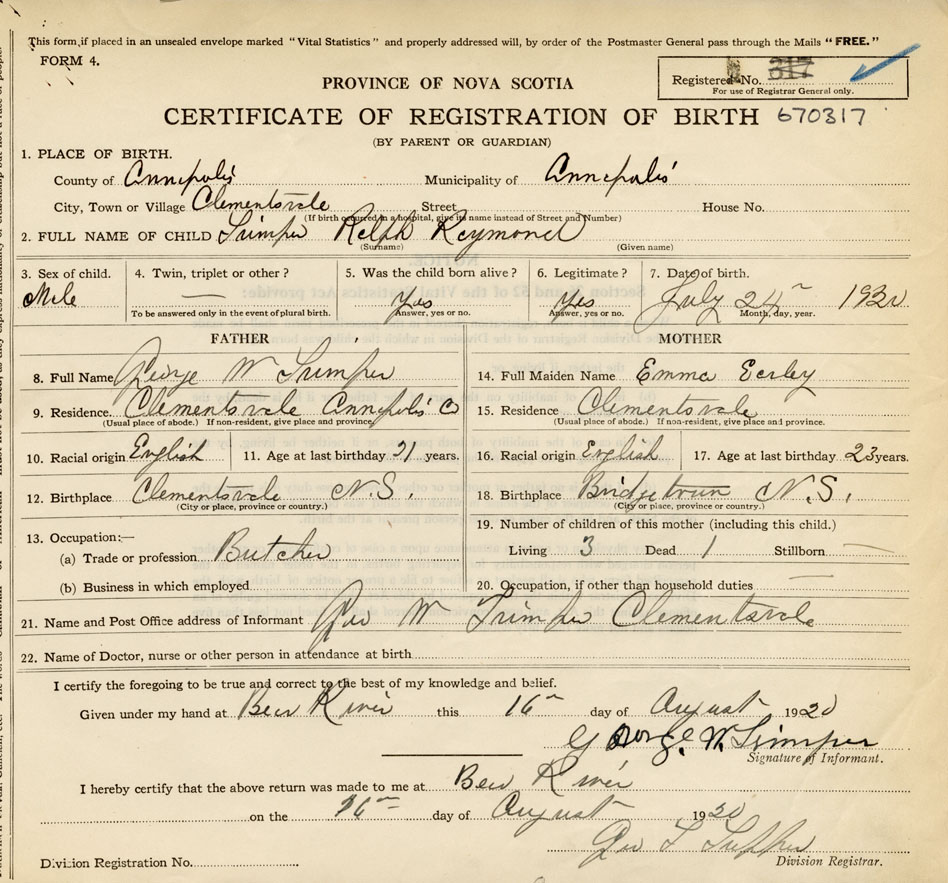 This form, if placed in an unsealed envelope marked "Vital Statistics" and properly addressed will, by order of the Postmaster General pass through the Mails "FREE."
FORM 4.
PROVINCE OF NOVA SCOTIA
Registered No. 317
For use of Registrar General only.
CERTIFICATE OF REGISTRATION OF BIRTH 670317
(BY PARENT OR GUARDIAN)
1. PLACE OF BIRTH.
County of Annapolis Municipality of Annapolis
City, Town or Village Clementsvale Street House No.
(If birth occurred in a hospital, give its name instead of Street and Number)
2. FULL NAME OF CHILD Trimper Ralph Raymond
(Surname) (Given name)
3. Sex of child. 4. Twin, triplet or other? 5. Was the child born alive? 6. Legitimate? 7. Date of birth.
Male — Yes Yes July 24th 1920
To be answered only in the event of plural birth. Answer, yes or no. Answer, yes or no. Month, day, year.
FATHER MOTHER
8. Full Name George W Trimper 14. Full Maiden Name Emma Earley
9. Residence. Clementsvale Annapolis Co 15. Residence Clementsvale
(Usual place of abode.) If non-resident, give place and province. (Usual place of abode.) If non-resident, give place and province.
10. Racial origin English 11. Age at last birthday years. 16. Racial origin English 17. Age at last birthday 23 years.
12. Birthplace Clementsvale N.S. 18. Birthplace Bridgetown N.S.
(City or place, province or country.) (City or place, province or country.)
13. Occupation:— 19. Number of children of this mother (including this child.)
(a) Trade or profession Butcher Living 3 Dead 1 Stillborn —
(b) Business in which employed 20. Occupation, if other than household duties —
21. Name and Post Office address of Informant Geo W Trimper Clementsvale
22. Name of Doctor, nurse or other person in attendance at birth
I certify the foregoing to be true and correct to the best of my knowledge and belief.
Given under my hand at Bear River this 16th day of August 1920
George. W. Trimper
Signature of Informant.
I hereby certify that the above return was made to me at Bear River
on the 16th day of August 1920
Geo
Division Registration No. Division Registrar.